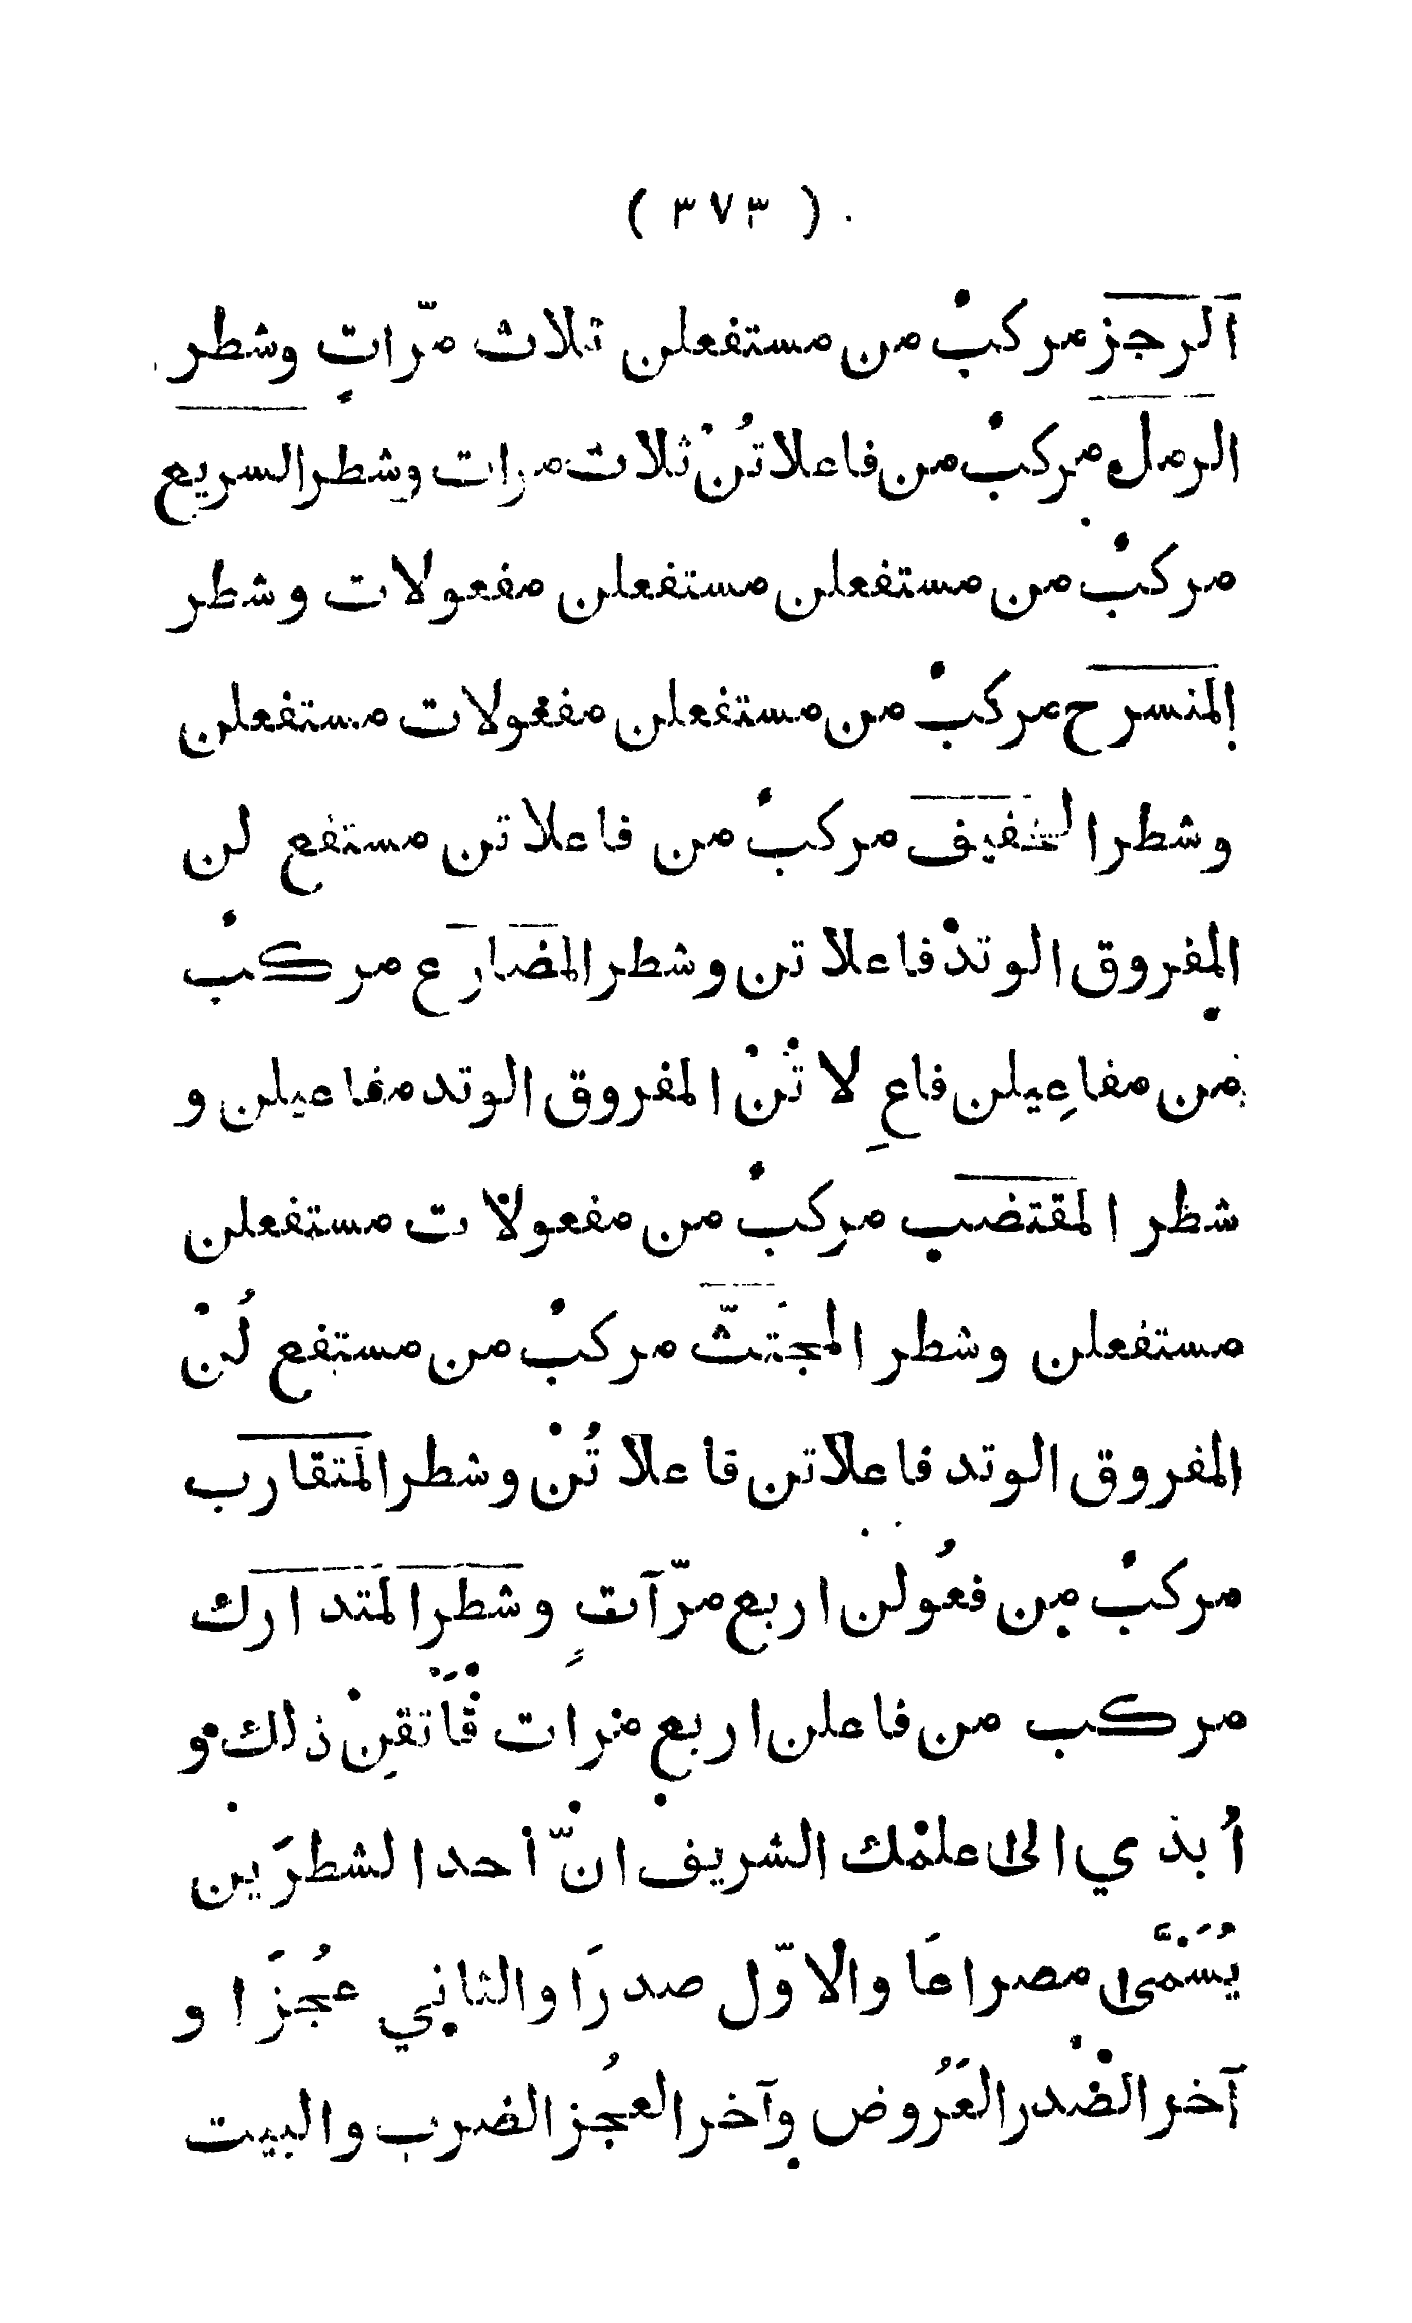 ( ٣٧٣ )
الرجز مركبٌ من مستفعلن ثلاث مرّاتٍ وشطر
الرمل مركبٌ من فاعلاتُنْ ثلاث مرات وشطر السريع
مركبٌ من مستفعلن مستفعلن مفعولات وشطر
المنسرح مركبٌ من مستفعلن مفعولات مستفعلن
وشطر الخفيف مركبٌ من فاعلاتن مستفع لن
المفروق الوتدْ فاعلاتن وشطر المضارع مركبٌ
من مفاعِيلن فاعِ لاتْنْ المفروق الوتد مفاعيلن و
شطر المقتضب مركبٌ من مفعولات مستفعلن
مستفعلن وشطر المجتَثّ مركبٌ من مستفع لُنْ
المفروق الوتد فاعلاتن فاعلاتُنْ وشطر المتقارب
مركبٌ من فعُولن اربع مرّآتٍ وشطر المتدارك
مركب من فاعلن اربع مرات فَأَتقِنْ ذلك و
أُبذي الى علمْك الشريف انّ أحد الشطرَين
يُسَمَّى مصراعَا والاوّل صدرَا والثاني عجُزَا و
آخر الصْدر العَرُوض وآخر العجُز الضرب والبيت